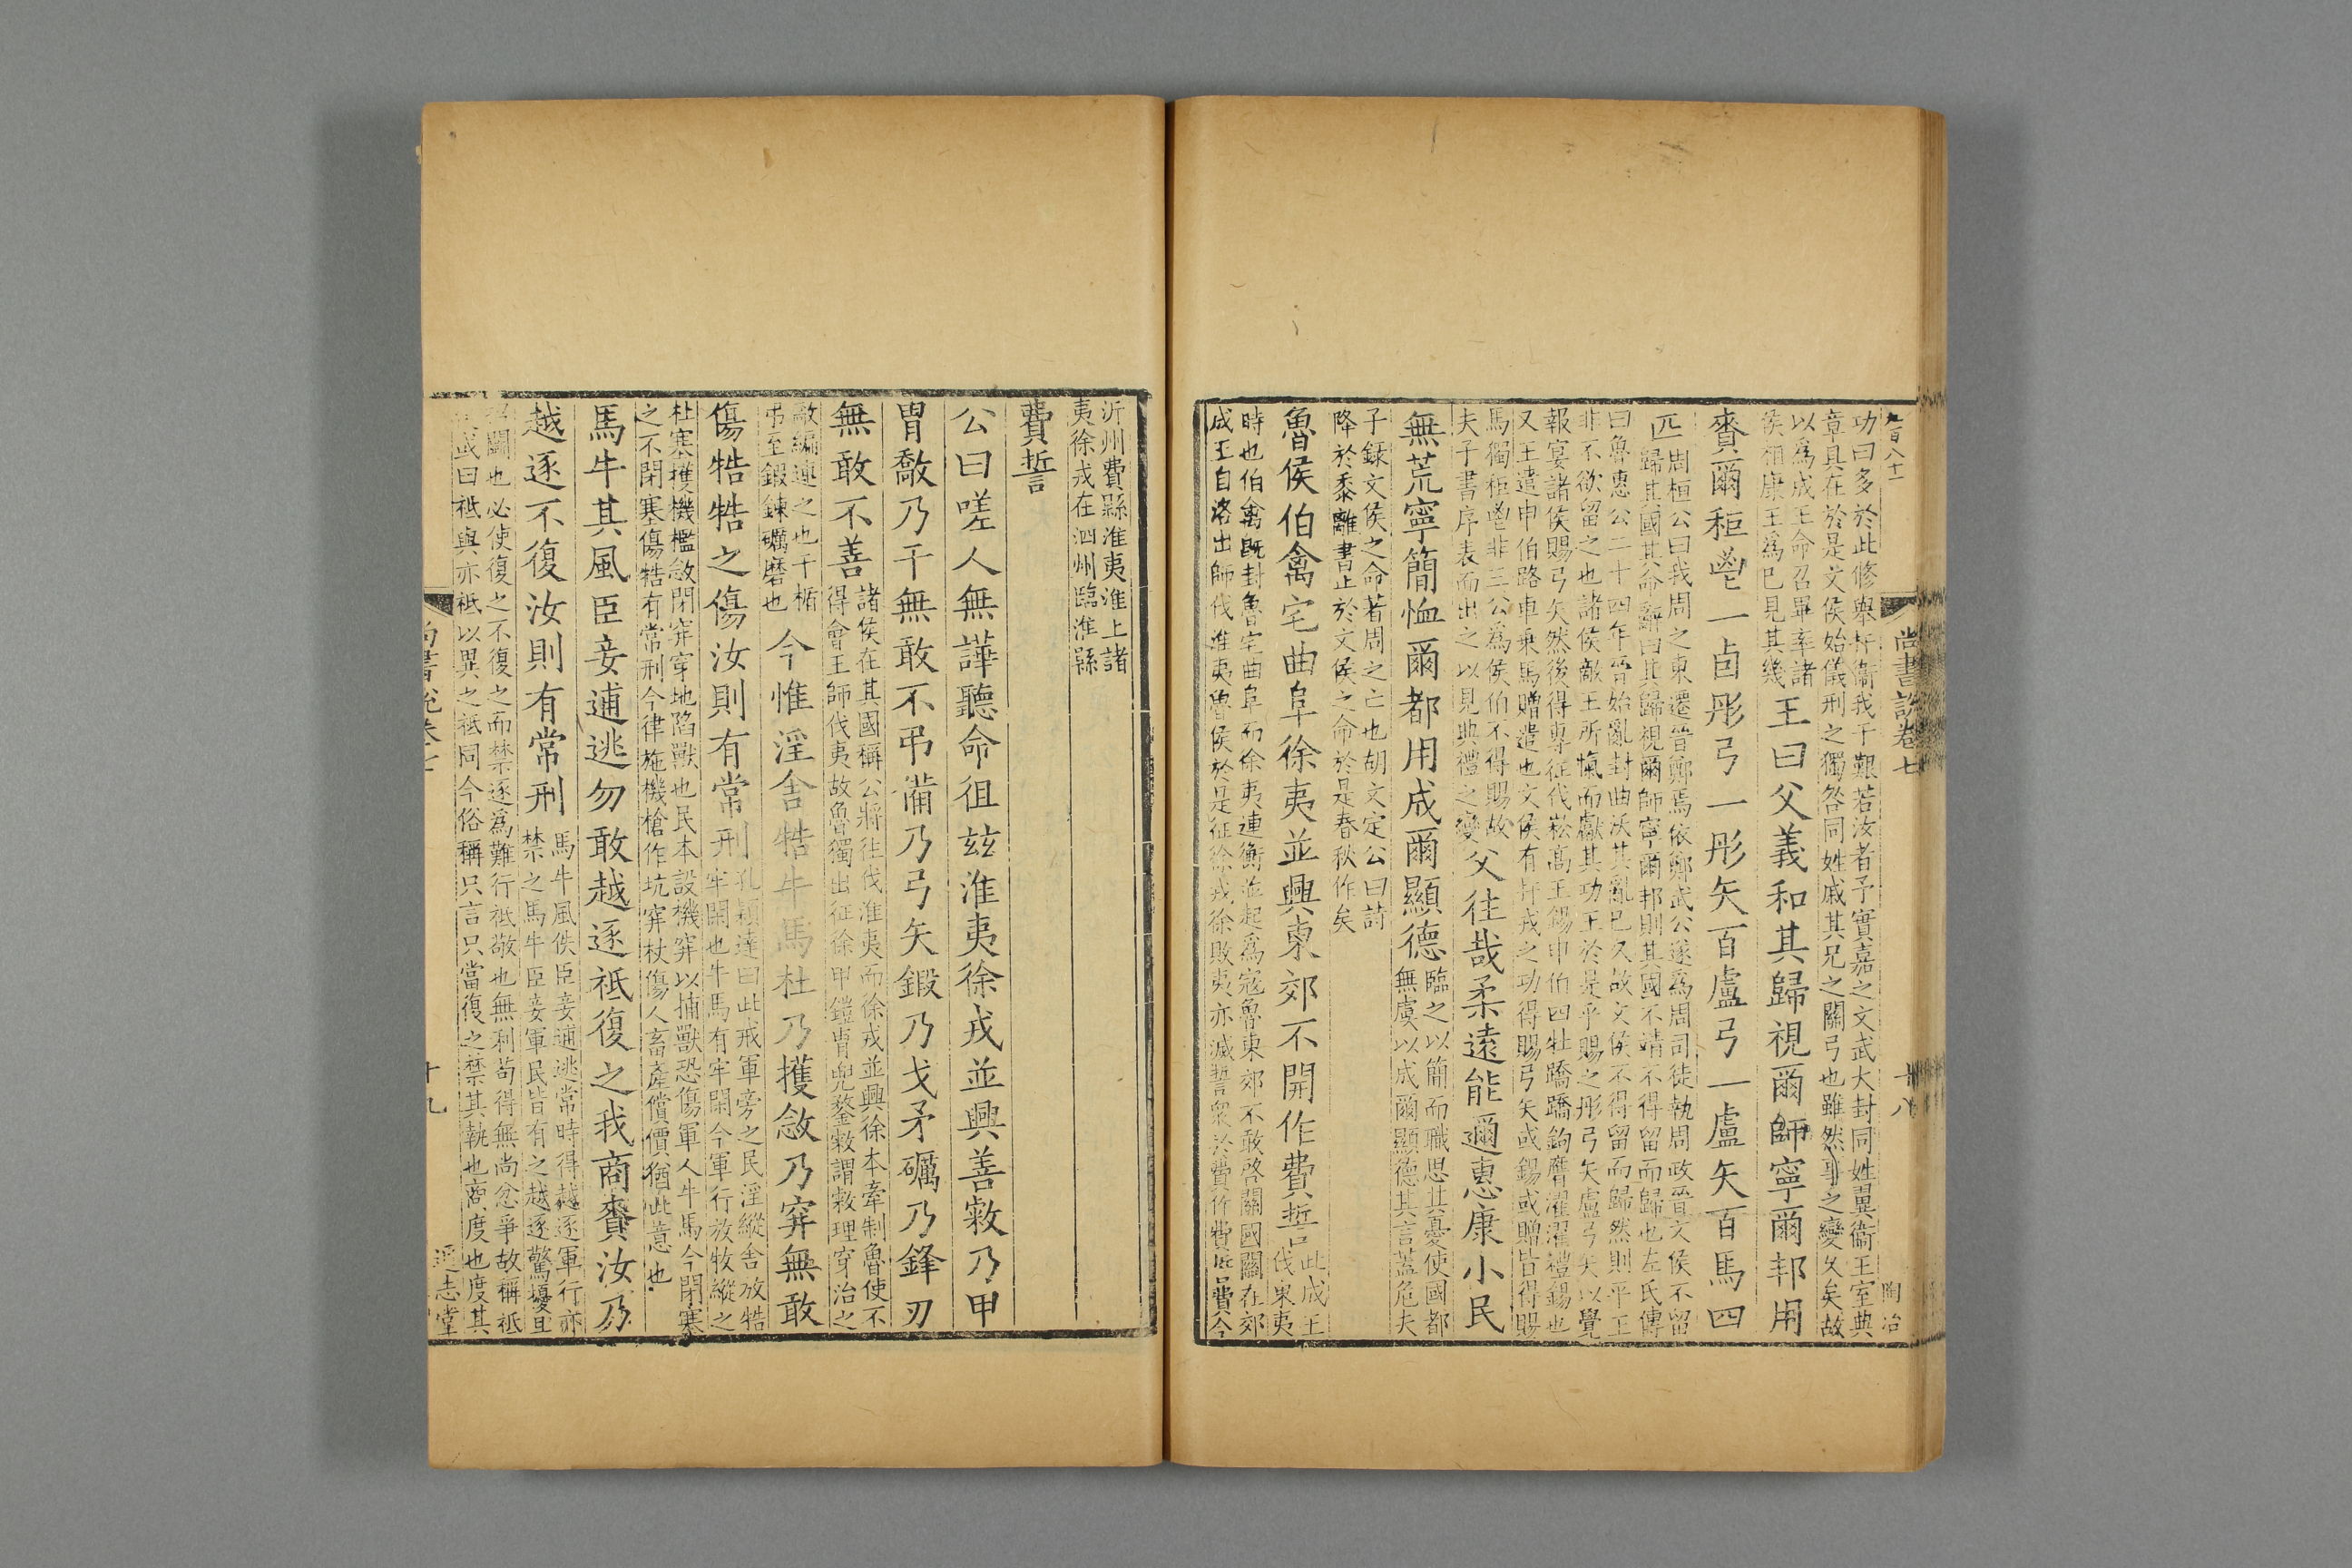 九百八十一
尚書說卷七
十八
陶冶
功曰多於此修舉扞衞我于艱若汝者予實嘉之文武大封同姓翼衞王室典
章具在於是文侯始儀刑之獨咎同姓戚其兄之關弓也雖然事之變久矣故
以爲成王命召畢率諸
侯相康王爲已見其幾
王曰父義和其歸視爾師寧爾邦用
賚爾秬鬯一卣彤弓一彤矢百盧弓一盧矢百馬四
匹
周桓公曰我周之東遷晉鄭焉依鄭武公遂爲周司徒執周政晉文侯不留
歸其國其命辭曰其歸視爾師寧爾邦則其國不靖不得留而歸也左氏傳
曰魯惠公二十四年晉始亂封曲沃其亂已久故文侯不得留而歸然則平王
非不欲留之也諸侯敵王所愾而獻其功王於是乎賜之彤弓矢盧弓矢以覺
報宴諸侯賜弓矢然後得專征伐崧高王錫申伯四牡蹻蹻鉤膺濯濯禮錫也
又王遣申伯路車乗馬贈遣也文侯有扞戎之功得賜弓矢或錫或贈皆得賜
馬獨秬鬯非三公爲侯伯不得賜故
夫子書序表而出之以見典禮之變
父往哉柔遠能邇惠康小民
無荒寧簡恤爾都用成爾顯德
臨之以簡而職思其憂使國都
無虞以成爾顯德其言蓋危夫
子錄文侯之命著周之亡也胡文定公曰詩
降於黍離書止於文侯之命於是春秋作矣
魯侯伯禽宅曲阜徐夷並興東郊不開作費誓
此成王
伐東夷
時也伯禽既封魯宅曲阜而徐夷連衡並起爲寇魯東郊不敢啓關國關在郊
成王自洛出師伐淮夷魯侯於是征徐戎徐敗夷亦滅誓衆於費作費誓費今
沂州費縣淮夷淮上諸
夷徐戎在泗州臨淮縣
費誓
公曰嗟人無譁聽命徂玆淮夷徐戎並興善敹乃甲
冑敿乃干無敢不弔備乃弓矢鍛乃戈矛礪乃鋒刃
無敢不善
諸侯在其國稱公將往伐淮夷而徐戎並興徐本牽制魯使不
得會王師伐夷故魯獨出征徐甲鎧冑兜鍪敹謂敹理穿治之
敵編連之也干楯
弔至鍜鍊礪磨也
今惟淫舍牿牛馬杜乃擭敜乃穽無敢
傷牿牿之傷汝則有常刑
孔穎達曰此戒軍旁之民淫縱舍放牿
牢閑也牛馬有牢閑今軍行放牧縱之
杜塞擭機檻敜閉穽穿地陷獸也民本設機穽以捕獸恐傷軍人牛馬今閉塞
之不閉塞傷牿有常刑今律施機槍作坑穽杖傷人畜產償價猶此意也
馬牛其風臣妾逋逃勿敢越逐祗復之我商賚汝乃
越逐不復汝則有常刑
馬牛風佚臣妾逋逃常時得越逐軍行亦
禁之馬牛臣妾軍民皆有之越逐驚擾且
鬬也必使復之不復之而禁逐爲難行祗敬也無利苟得無尚忿爭故稱祗
或曰祗與亦祗以異之祗同今俗稱只言只當復之禁其執也商度也度其
尚書說卷七
十九
通志堂